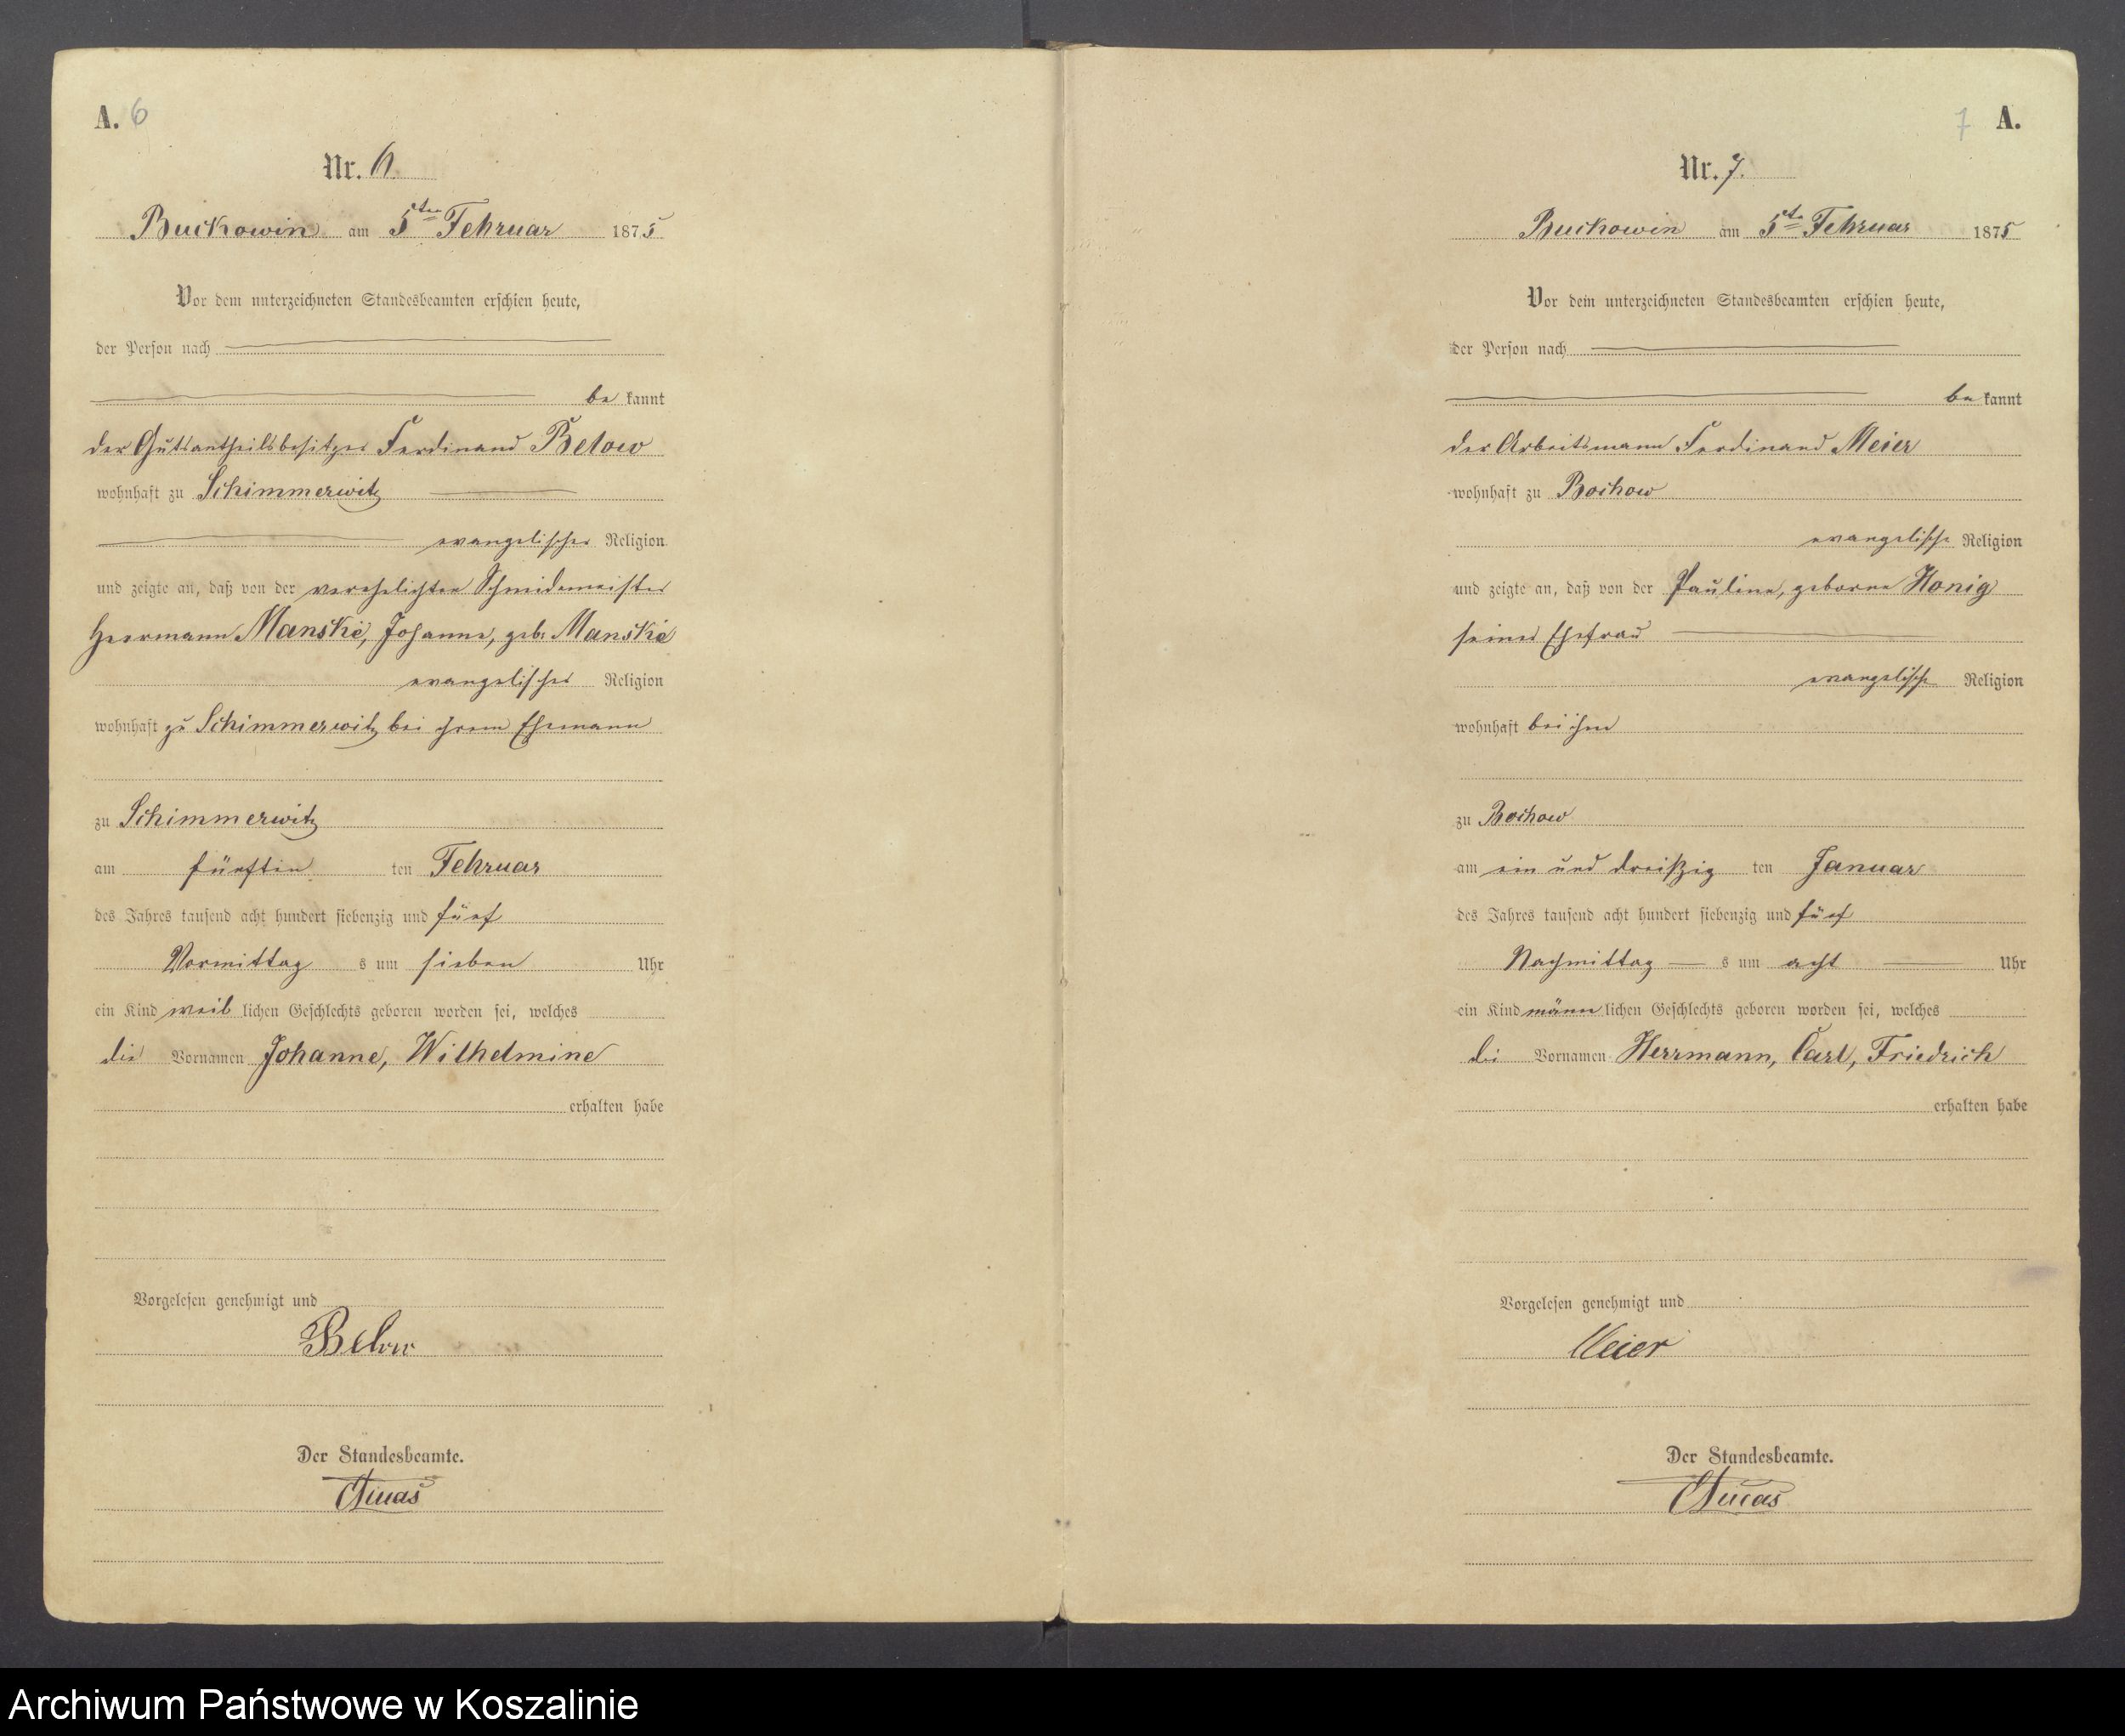 A. 6
Nr. 6.
Buckowin am 5ten Februar 1875
Vor dem unterzeichneten Standesbeamten erschien heute,
der Person nach
be kannt
der Gutsantheilsbesitzer Ferdinand Below
wohnhaft zu Schimmerwitz
evangelischer Religion
und zeigte an, daß von der verehelichten Schneidemeister
Herrmann Manské, Johanne, geb. Manské
evangelischer Religion
wohnhaft zu Schimmerwitz bei ihrem Ehemann
zu Schimmerwitz
am fünften ten Februar
des Jahres tausend acht hundert siebenzig und fünf
Vormittag s um sieben Uhr
ein Kind weib lichen Geschlechts geboren worden sei, welches
die Vornamen Johanne, Wilhelmine
erhalten habe
Vorgelesen genehmigt und
Below
Der Standesbeamte.
7 A.
Nr. 7.
Buckowin am 5te Februar 1875
Vor dem unterzeichneten Standesbeamten erschien heute,
der Person nach
be kannt
der Arbeitsmann Ferdinand Meier
wohnhaft zu Bochow
evangelische Religion
und zeigte an, daß von der Pauline, geborne Honig
seiner Ehefrau
evangelische Religion
wohnhaft bei ihm
zu Bochow
am ein und dreißzig ten Januar
des Jahres tausend acht hundert siebenzig und fünf
Nachmittag s um acht Uhr
ein Kind männ lichen Geschlechts geboren worden sei, welches
di Vornamen Herrmann, Carl, Friedrich
erhalten habe
Vorgelesen genehmigt und
Meier
Der Standesbeamte.
Archiwum Państwowe w Koszalinie